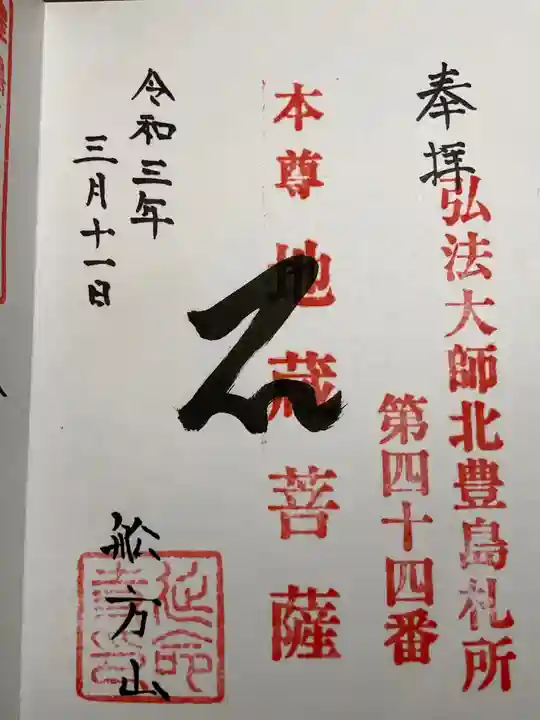 奉拝
弘法大師北豊島札所
第四十四番
本尊 地蔵菩薩
令和三年
三月十一日
舩方山
延命